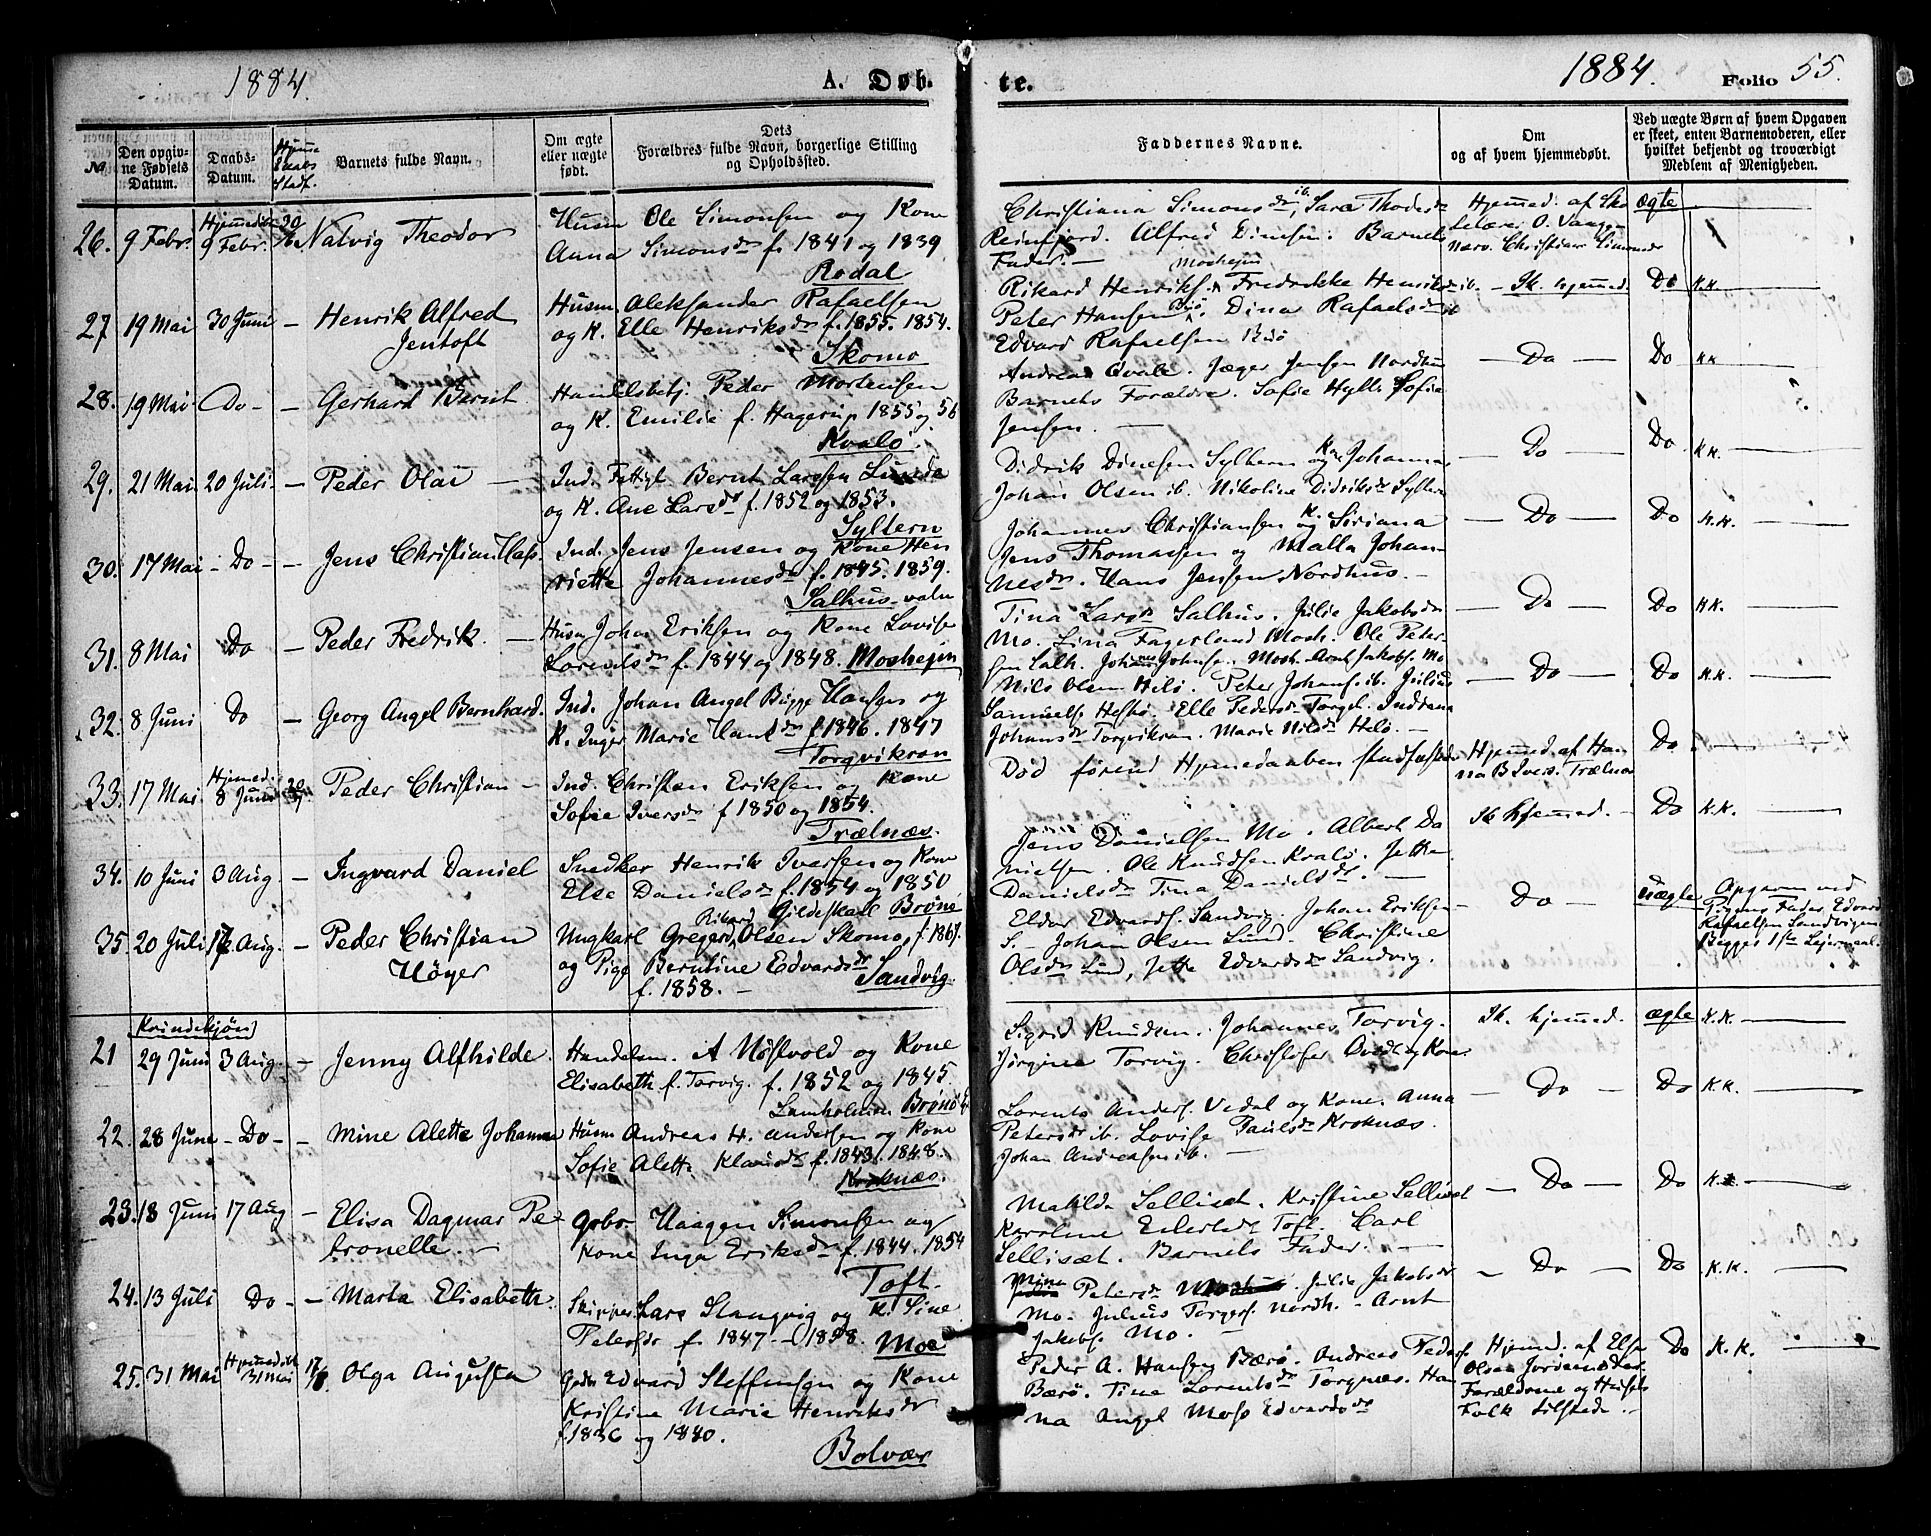 1884.
A. Døb-
te.
1884.
Folio 55.
No
Den opgiv-
ne Fødsels
Datum.
Daabs-
Datum.
Barnets fulde Navn.
Om ægte
eller uægte
født.
Dets
Forældres fulde Navn, borgerlige Stilling
og Opholdssted.
Faddernes Navne.
Om
og af hvem hjemmedøbt.
Ved uægte Børn af hvem Opgaven
er skeet, enten Barnemoderen, eller
hvilket bekjendt og troværdigt
Medlem af Menigheden.
26. 9 Febr. 9 Febr. Nalvig Theodor
Husm Ole Simonsen og Kone
Anna Simonsdr f. 1841 og 1839
Rodal
Christiana Simonsdr ib, Sara
Reinfjord. Alfred Dinesen. Barnets
Fader. —
Hjemmed. af
Christian
ægte
27. 19 Mai 30 Juni — Henrik Alfred
Jentoft
Husm. Aleksander Rafaelsen
og K. Elle Henriksdr f. 1855. 1854.
Skomo
Mosheim
Rikard Henriks. Fredrikke Henriksdr ib.
Peter Hansen Dina Rafaelsdr ib
Edvard Rafaelsen
— Sk. hjemmed. Do K.K. —
28. 19 Mai Do — — Gerhard Bernt.
Handelsbetj. Peder Mortensen
og K. Emilie f. Hagerup 1855 og 56
Kvalø.
Andreas Jæger Jensen Nordhus
Barnets Forældre. Sofie Sofie
Jensen. —
— Do — Do K.K. —
29. 21 Mai 20 Juli — Peder Olai —
Ind. Bernt Larssen
og K. Ane Larsdr f. 1852 og 1853.
Syltern
Didrik Dinesen Syltern og Kone Johanna
Johan Olsen ib. Nikoline Didriksdr Syltern
— Do — Do K.K. —
30. 17 Mai — Do — — Jens Christian
Ind. Jens Jensen og Kone Hen
riette Johannesdr f. 1845. 1859.
Salhus
Johannes Christiansen og K. Siriana
Jens Thomassen og Malla Johan-
nesdr. Hans Jensen Nordhus. —
— Do — Do K.K. —
31. 8 Mai Do — Peder Fredrik. —
Husm Johan Eriksen og Kone Lovise
Lorentsdr f. 1844 og 1848. Moshejm
Tina Larsdr Salhus. Julie Jakobsdr
Mo. Lina Fagerland Mosh. Ole Peter-
sen Salh. Johnsen. Mosh. Arnt Jakobs. Mo
— Do — Do K.K. —
32. 8 Juni Do — Georg Angel Bernhard.
Ind. Johan Angel Bugge Hansen og
K. Inger Marie f. 1846. 1847
Torgvikran
Nils Olsen Helø. Peter Johans. ib. Julius
Samuelss Elle Pedersdr Torget. Indiana
Johansdr Torgvikran. Marie Nilsdr Helø. —
— Do — Do K.K. —
33. 17 Mai Hjemmed. 8 Juni Peder Christian —
Ind. Christen Eriksen og Kone
Sofie Iversdr f 1850 og 1854.
Trælnæs.
Død førend Hjemmedaaben stadfæstedes
Hjemmed. af Han
na B Ivers. Trælnæs
Do
34. 10 Juni 3 Aug. — Ingvard Daniel
Snedker Henrik Iversen og Kone
Else Danielsdr f. 1854 og 1850
Gildeskaal Brønø
Jens Danielsen Mo. Albert Da
nielsen. Ole Knudsen Kvalø. Jette
Danielsdr Tina Danielsdr. —
Sk hjemmed. — Do K.K. —
35. 20 Juli 17 Aug. — Peder Christian
Høyer
Ungkarl Gregard Rikard Olsen Skomo, f. 1861.
og Pige Berntine Edvardsdr
f. 1858. — Sandvig
Eldor Edvards. Sandvig. Johan Eriksen
S. — Johan Olsen Lund. Christine
Olsdr Lund, Jette Edvardsdr Sandvig.
— Do — uægte
Opgaven ved
Pigens Fader, Edvard
Rafaelsen Sandvigen
Begges 1ste Lejermaal.
Kvindekjøn
21 29 Juni 3 Aug. — Jenny Alfhilde.
Handelsm. A Nøstvold og Kone
Elisabeth f. Torvig. f. 1852 og 1845.
Lamholmen Brønø
Sigrid Knudsen. Johannes Torvig.
Jørgine Torvig. Christofer og Kone
Sk. hjemmed. ægte K.K. —
22. 28 June — Do — — Mine Alette Johanna
Husm Andreas H. Andersen og Kone
Sofie Alette Klausdr f. 1843. 1848.
Kroknæs.
Lorents Anders. Vedal og Kone Anna
Petersdr ib. Lovise Paulsdr Kroknæs.
Johan Andreassen ib. —
— Do — Do K.K. —
23. 18 Juni 17 Aug — Elisa Dagmar Pe-
tronelle. —
Gbr. Haagen Simonsen og
Kone Inga Eriksdr f. 1844. 1854
Toft.
Matilda Sellisæt. Kristine Sellisæt
Karoline Eilertsdr Toft. Carl
Sellisæt. Barnets Fader. —
— Do — Do K.K. —
24. 13 Juli Do — — Marta Elisabeth.
Skipper Lars Slangvig og K. Sine
Petersdr f. 1847 — 1858. Moe
Mina Petersdr Julie Jakobsdr
Mo. Julius Torgers. Nordh. — Arnt
Jakobs. Mo. —
— Do — Do K.K. —
25. 31 Mai Hjemmedøbt 31 Mai 17/8 Olga Augusta
Edvard Steffensen og Kone
Kristine Marie Henriksdr
f. 1836 og 1840.
Bolvær
Peder A. Hansen Bærø. Andreas Peders
Bærø. Tina Lorentsdr Torgnæs. Han
na Angel Moe Edvardsdr
Hjemmed. af Else
Olsen Jordemoder
Forældrene og Husets
Folk tilstede. —
Do K.K. —